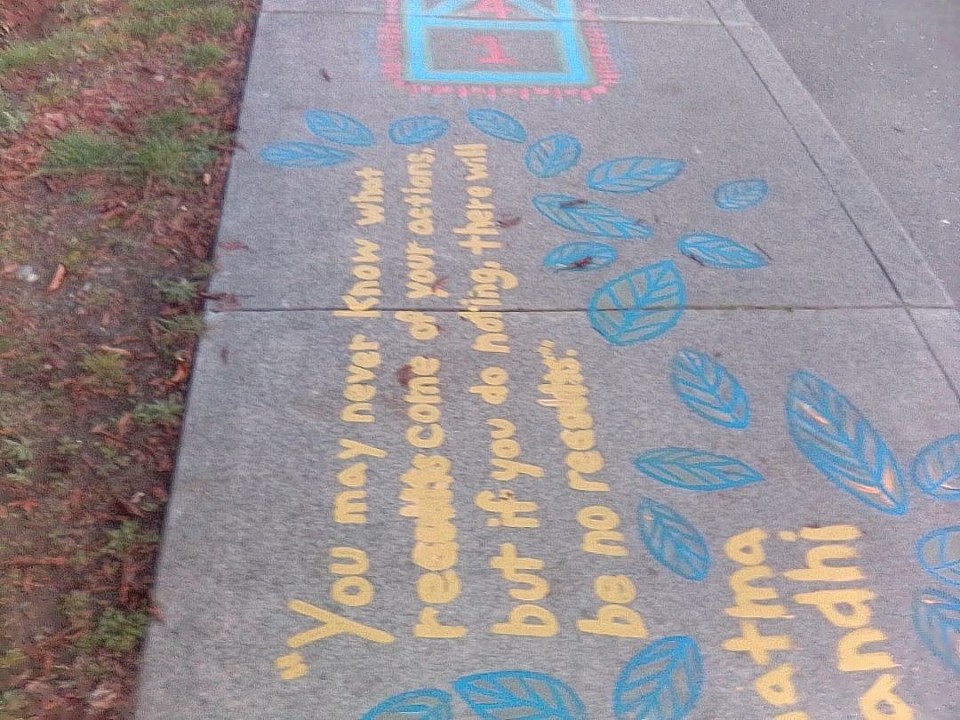 "You may never know what
results come of your actions,
but if you do nothing, there will
be no results."
atma
andhi